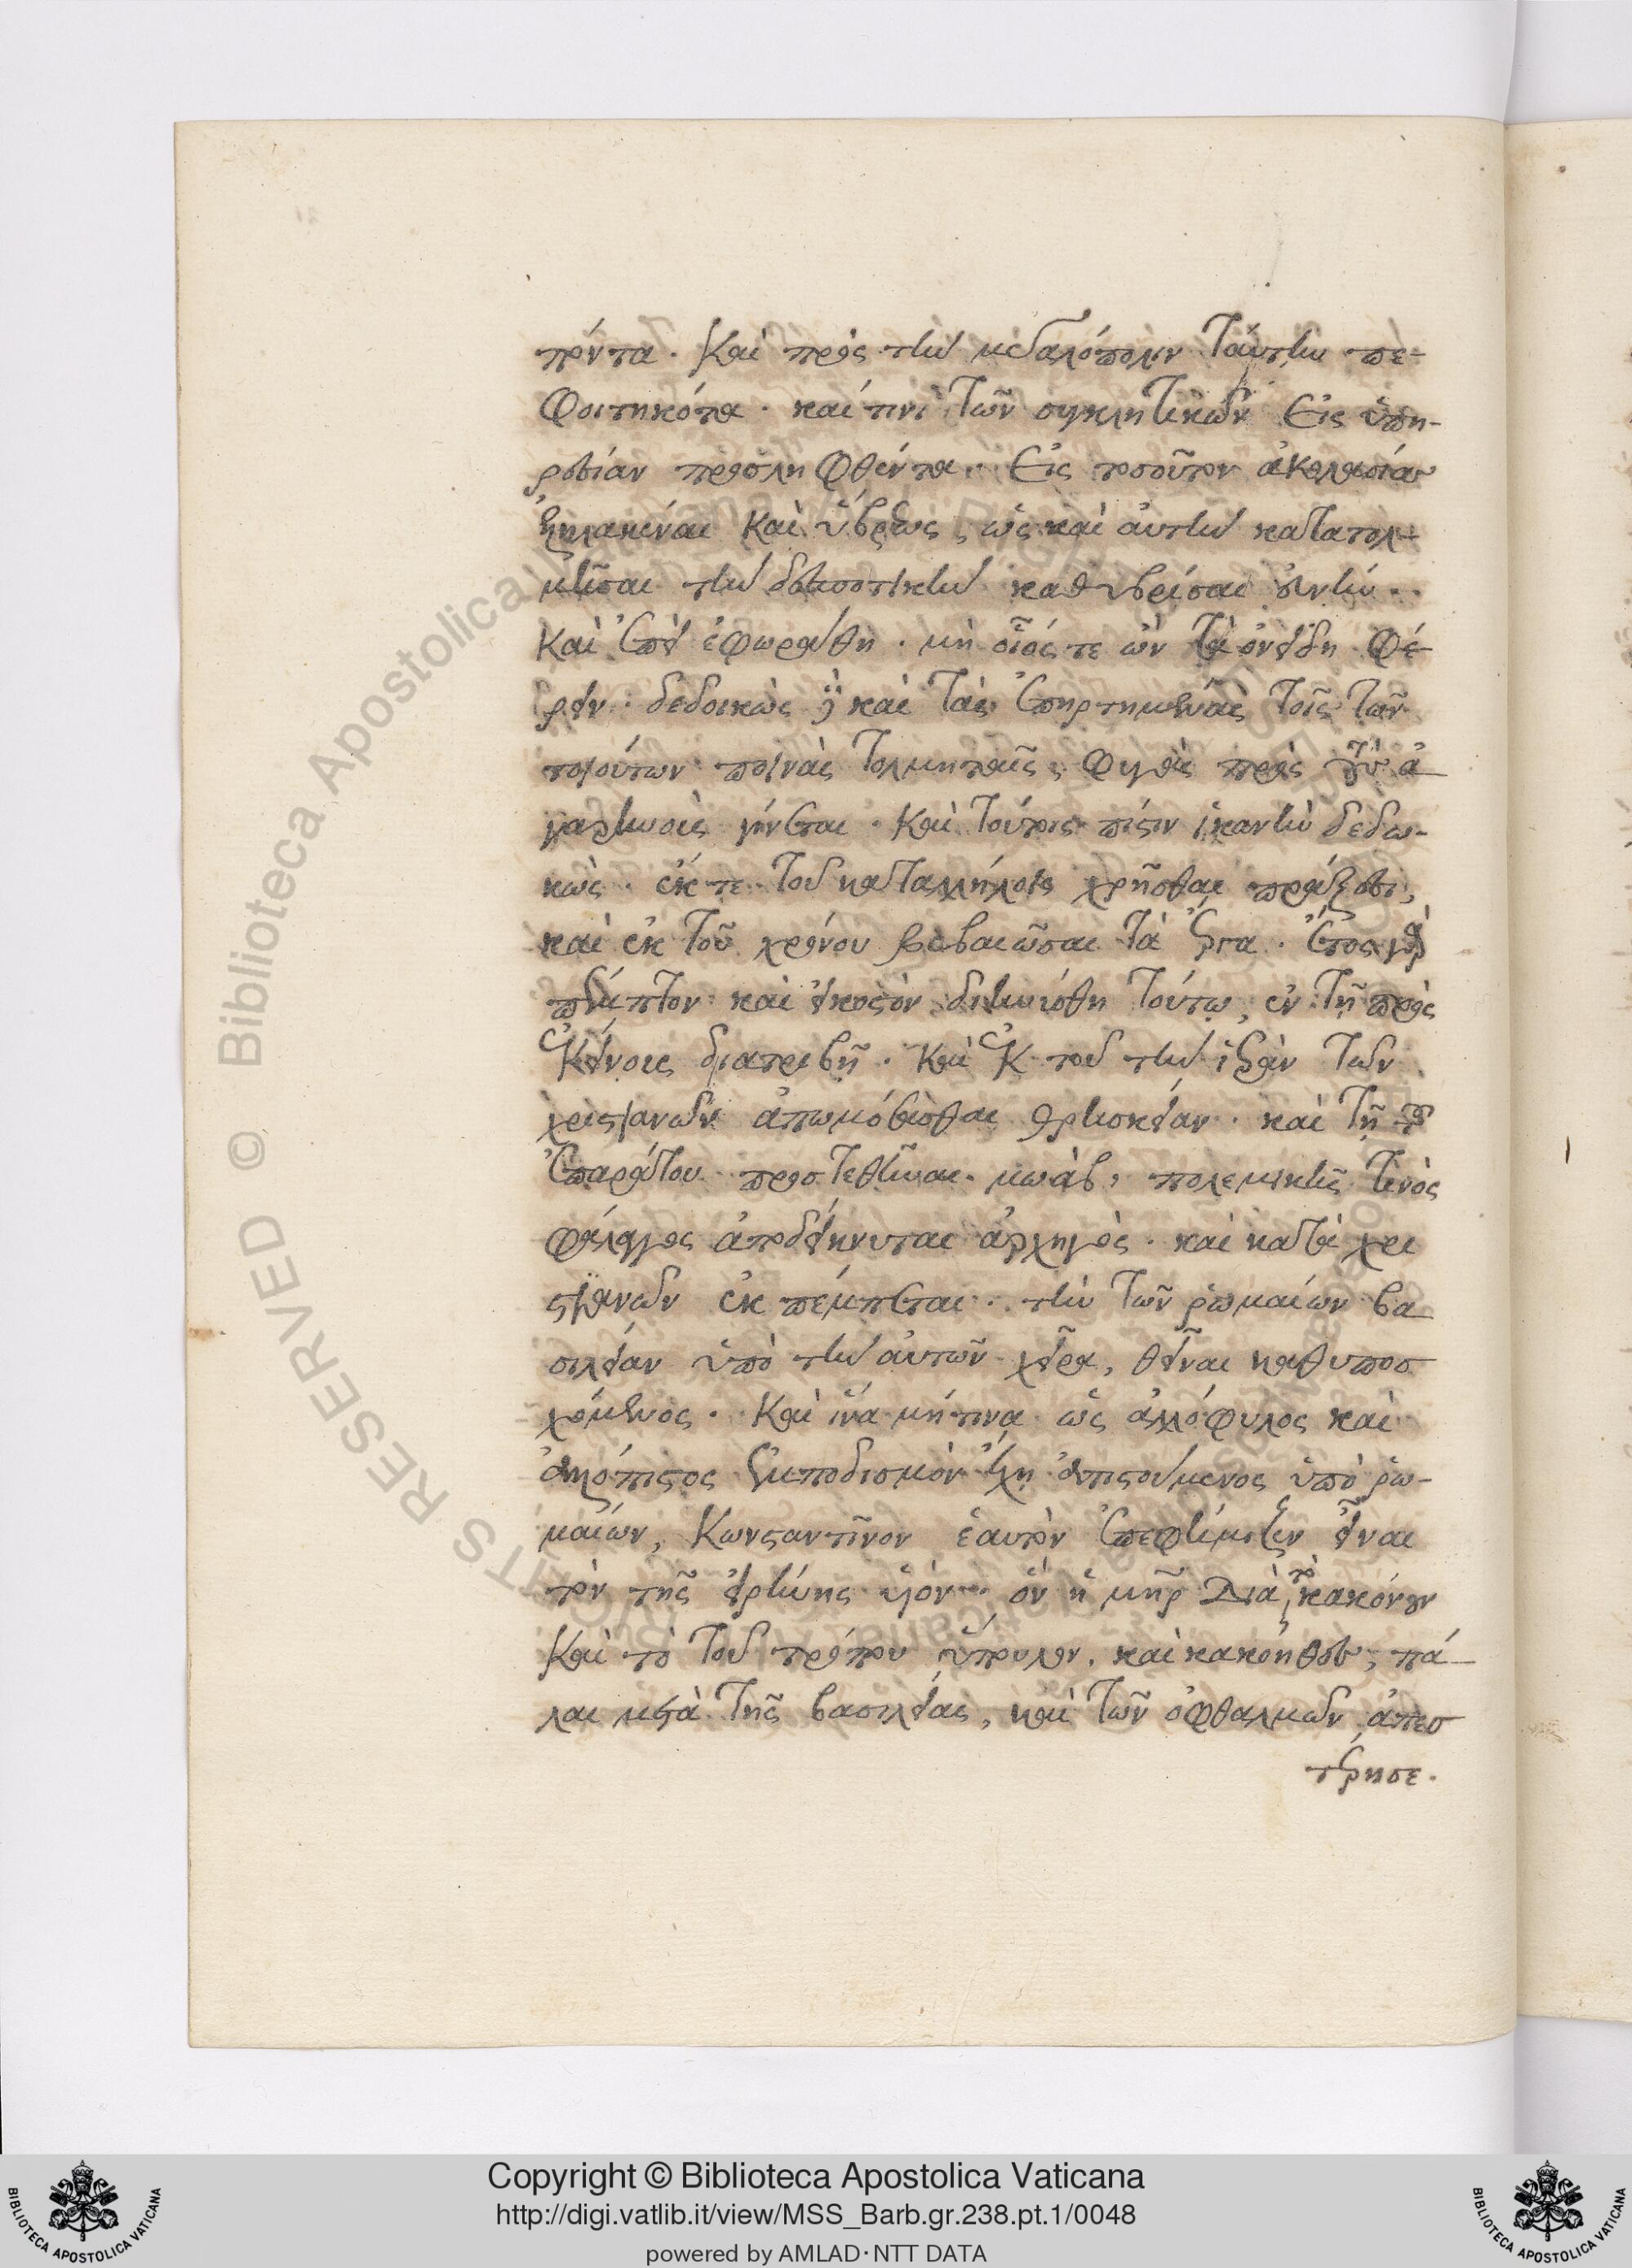 πόντα. Καὶ πρὸς τὴν μεγαλόπολιν ταύτην πε-
φοιτηκότα. καί τινι τῶν συγκλητικῶν εἰς ὑπη-
ρεσίαν προσληφθέντα. εἰς τοσοῦτον ἀκολασίας
ἐληλακέναι καὶ ὕβρεως, ὡς καὶ αὐτὴν κατατολ-
μῆσαι τὴν δεσποτικὴν καθυβρίσαι εὐνήν.
Καὶ ἐπεὶ ἐφωράθη. μὴ οἷός τε ὢν τὰ ὀνείδη φέ-
ρειν. δεδοικὼς δὲ καὶ τὰς ἐπηρτημένας τοῖς τῶν
τοιούτων ποινὰς τολμηταῖς, φυγὰς πρὸς τοὺς ἀ
γαρηνοὺς γίνεται. Καὶ τούτοις πίστιν ἱκανὴν δεδω-
κὼς. ἔκ τε τοῦ καταλλήλοις χρῆσθαι πράξεσι,
καὶ ἐκ τοῦ χρόνου βεβαιῶσαι τὰ ἔργα. ἔτος γὰρ
πέμπτον καὶ εἰκοστὸν διηνύσθη τούτῳ, ἐν τῇ πρὸς
ἐκείνους διατριβῇ. Καὶ ἐκ τοῦ τὴν ἱερὰν τῶν
χριστιανῶν ἀπωμόσασθαι θρησκείαν. καὶ τῇ τοῦ
ἐπαράτου προστεθῆναι μωὰβ, πολεμικῆς τινὸς
φάλαγγος ἀποδείκνυται ἀρχηγὸς. καὶ κατὰ χρι
στιανῶν ἐκπέμπεται. τὴν τῶν ῥωμαίων βα
σιλείαν ὑπὸ τὴν αὐτῶν χεῖρα, θεῖναι καθυποσ
χόμενος. Καὶ ἵνα μή τινα ὡς ἀλλόφυλος καὶ
ἀλλόπιστος ἐμποδισμὸν ἔχῃ ἀπιστούμενος ὑπὸ ῥω-
μαίων, Κωνσταντῖνον ἑαυτὸν ἐπεφήμιζεν εἶναι
τὸν τῆς εἰρήνης υἱόν. ὃν ἡ μήτηρ διὰ τὸ κακόνουν
Καὶ τὸ τοῦ τρόπου ὕπουλον. καὶ κακόηθες, πά-
λαι μετὰ τῆς βασιλείας, καὶ τῶν ὀφθαλμῶν ἀπεσ
τέρησε.
Copyright © Biblioteca Apostolica Vaticana
http://digi.vatlib.it/view/MSS_Barb.gr.238.pt.1/0048
powered by AMLAD·NTT DATA
BIBLIOTECA APOSTOLICA VATICANA
BIBLIOTECA APOSTOLICA VATICANA